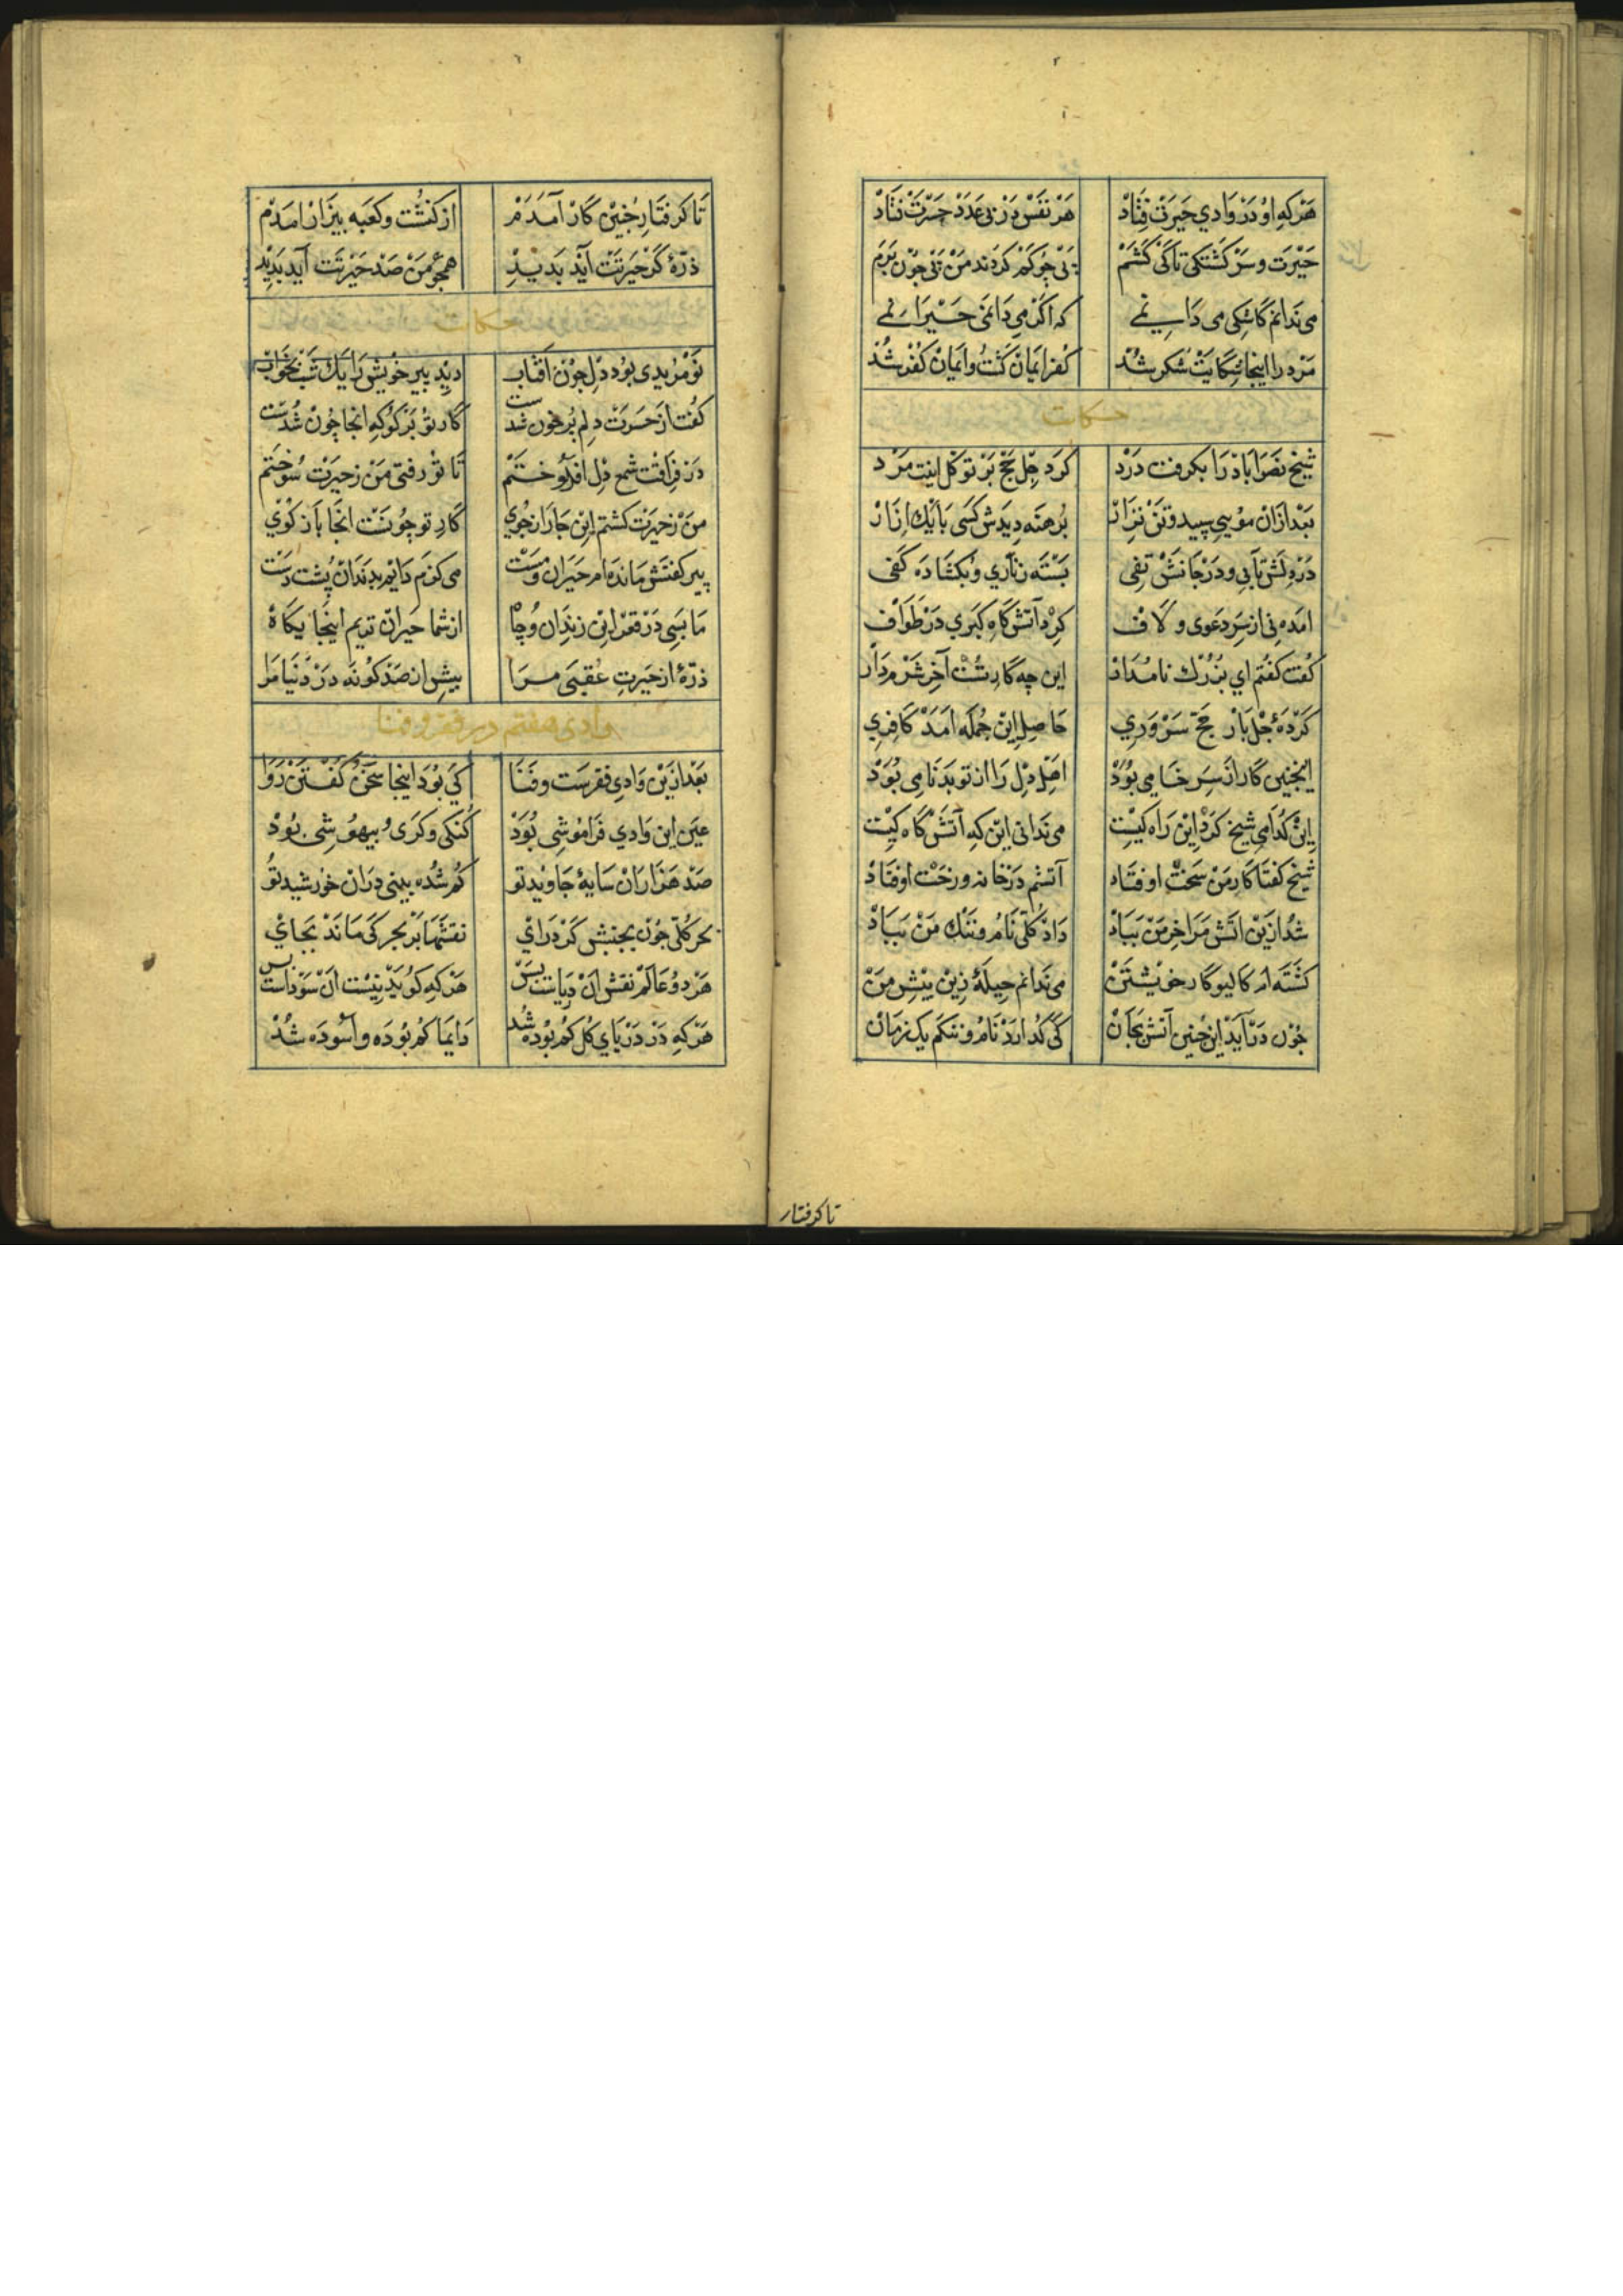 هَرْکِه اوْ دَرْ وَادي حَیرَتْ فِتَادْ هَرْ نَفَسْ دَرْ بی عَدَدْ حَسْرَتْ فتَادْ
حَیْرَت و سَرْ کَشْتَکی تَا کَیْ کَشَمْ پَیْ چو کُمْ کَرْدَند مَنْ پَیْ چُوْنْ بَرَم
می نَدَانم کَاشِکی می دَانِمے کِه اکَرْ می دَانَمی حَیْرَانِمے
مَرْد را اینجَا شِکَایَتْ شُکر شُدْ کُفر ایمَانْ کَشْتُ و ایمَانْ کُفْر شُدْ
حکایت
شیْخ نَصْرَابَادْ رَا بکرفت دَرْدْ کَرد چِلْ حَج بَرْ تَوَکّل اینت مَرْد
بَعْد ازَانْ مُوْیي سپید و تَنْ نزَارْ بُرهنَه دِیدَش کَسَی بَا یَکْ اِزَارْ
دَرْ دِلَشْ تَابي و دَرْ جَانَشْ تَفی بَسْتَه زنّاري وُ بکشَادَه کَفی
امَده نی از سَرِ دَعوی و لَاف کِرْدِ آتَشْ کَاه کَبْري دَرْ طَوَاف
کُفت کفتُم اي بزُرْکْ نامْدَار این چه کَارِ تُسْت آخِر شَرْم دَارْ
کَرْدَهٔ چِلْ بَارْ حَجّ سَرْوَرِي حَاصِلِ اینْ جُملَه امَدْ کَافِرِي
اینچنین کار از سَرِ خَامي بُوَدْ اهْلِ دِل رَا از تو بَدْنَامی بُوَدْ
اینْ کُدَامي شیخ کَرْد اینْ رَاه کیْست می نَدَانی این کِه آتَشْ کَاه کیْست
شیْخ کفتَا کَارِ مَنْ سَخت اوفتَاد آتشم دَرْ خَانه و رخْت اوفتَادْ
شُد ازیْن اتَش مَرَا خِرمَنْ بَبَادْ دَادْ کُلّی نَامُ و ننَکْ مَنْ بَبَادْ
کَشْتَه ام کَالیو کَارِ خویْشتَنْ می نَدَانم حِیلَهٔ زِیْن بیْش مَنْ
چُوْن دَرْآیَدْ اینْ چُنین آتش بجَانْ کَیْ کُذَارَدْ نَامُ و ننکَم یک زمَانْ
تا کرفتار
تَا کرفتَارِ چُنیْن کَارْ آمَدَمْ از کنشْت و کعْبَه بیزَارْ امَدَم
ذرّهٔ کَرْ حَیرتَتْ آیَدْ بَدیدْ همچُو مَنْ صَدْ حَیْرتَت آیَد بَدیْد
حکایت
نَوْمُریدی بُوْد دِل چُونْ آفتَاب دیْد پیر خویْش رَا یَکْ شَبْ بخَوَاب
کفُت از حَسْرَتْ دِلم پُر خون شدست کَار تُوْ بَر کُو کِه انجَا چُونْ شُدَست
دَرْ فِرَاقت شَمْع دِل افْروْختَمْ تَا تُوْ رفتی مَنْ زحیرَتْ سُوختم
مَنْ زحَیْرَتْ کَشتم اینْ جَا رَازجُوي کَارِ تو چُونسَت انجَا بَازْ کُوْي
پیر کفتَش مَانْدَه ام حَیرَان و مَسْت می کزم دَایم بدَندَانْ پُشت دَسْت
مَا بَسَی دَرْ قعْر اینْ زندَان وُ چَاهْ از شما حَیرانْ تریم اینجَا یکَاهْ
ذرّهٔ از حَیرتِ عُقْبَی مرَا بیش از صَدْ کُونَه دَرْ دُنیَا مَرَا
وادی هفتم در فقر و فنا
بَعْد ازیْن وَادي فقرسَت و فَنَا کَیْ بُوَد اینجَا سخَنْ کُفْتنْ رَوَا
عَیْن این وَادي فَرَامُوشی بُوَدْ کُنکی و کَری وُ بیهُوشِی بُوَدْ
صَدْ هَزَارَانْ سَایهٔ جَاویْد تُو کُم شُدَه بینی دَرانْ خورْشید تُو
بحر کُلّی چُونْ بجنبش کَرْد رَایْ نقشهَا بَرْ بحر کَی مَانَدْ بجَايْ
هَرْ دوُ عَالَمْ نقش انْ دَرْیاست بَسْ هَرْ کِه کُویَدْ نیْست انْ سَوْداست بس
هَرْ کِه دَرْ دَرْیَايِ کُل کُم بُوده شُد دَایمَا کُم بُوَده و اسُوْدَه شُدْ